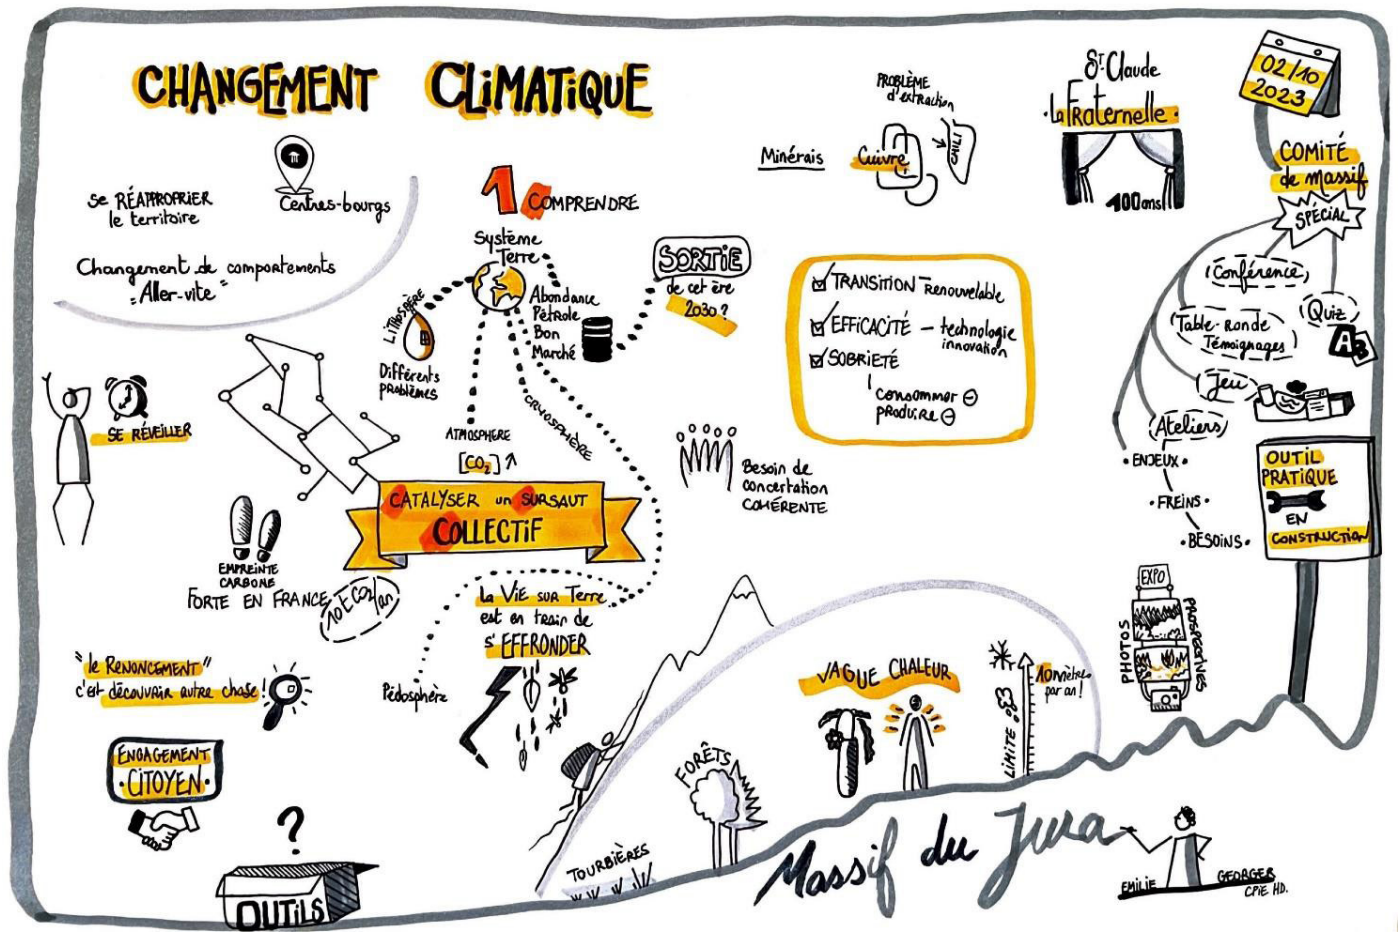 CHANGEMENT CLIMATIQUE
Se RÉAPPROPRIER
le territoire
Centres-bourgs
Changement de comportements
"Aller-vite"
SE RÉVEILLER
EMPREINTE
CARBONE
FORTE EN FRANCE
10t CO2/an
"le RENONCEMENT"
c'est découvrir autre chose !
ENGAGEMENT
CITOYEN
?
OUTILS
1 COMPRENDRE
Système
Terre
LITHOSPHÈRE
Différents
problèmes
Abondance
Pétrole
Bon
Marché
SORTIE
de cet ère
2030 ?
ATMOSPHERE
[CO2]
CRYOSPHÈRE
CATALYSER un SURSAUT
COLLECTIF
la Vie sur Terre
est en train de
s'EFFRONDER
Pédosphère
Minérais
Cuivre
PROBLÈME
d'extraction
CHILI
TRANSITION - Renouvelable
EFFICACITÉ - technologie
innovation
SOBRIETÉ
consommer -
produire -
Besoin de
concertation
COHÉRENTE
St Claude
La Fraternelle
100ans
02/10
2023
COMITÉ
de massif
SPÉCIAL
Conférence
Quiz
A B
Table-Ronde
Témoignages
Jeu
Ateliers
ENJEUX
FREINS
BESOINS
OUTIL
PRATIQUE
EN
CONSTRUCTION
EXPO
PHOTOS
PROSPECTIVES
VAGUE CHALEUR
LIMITE
10 mètres
par an !
FORÊTS
TOURBIÈRES
Massif du Jura
EMILIE GEORGER
CPIE HD.